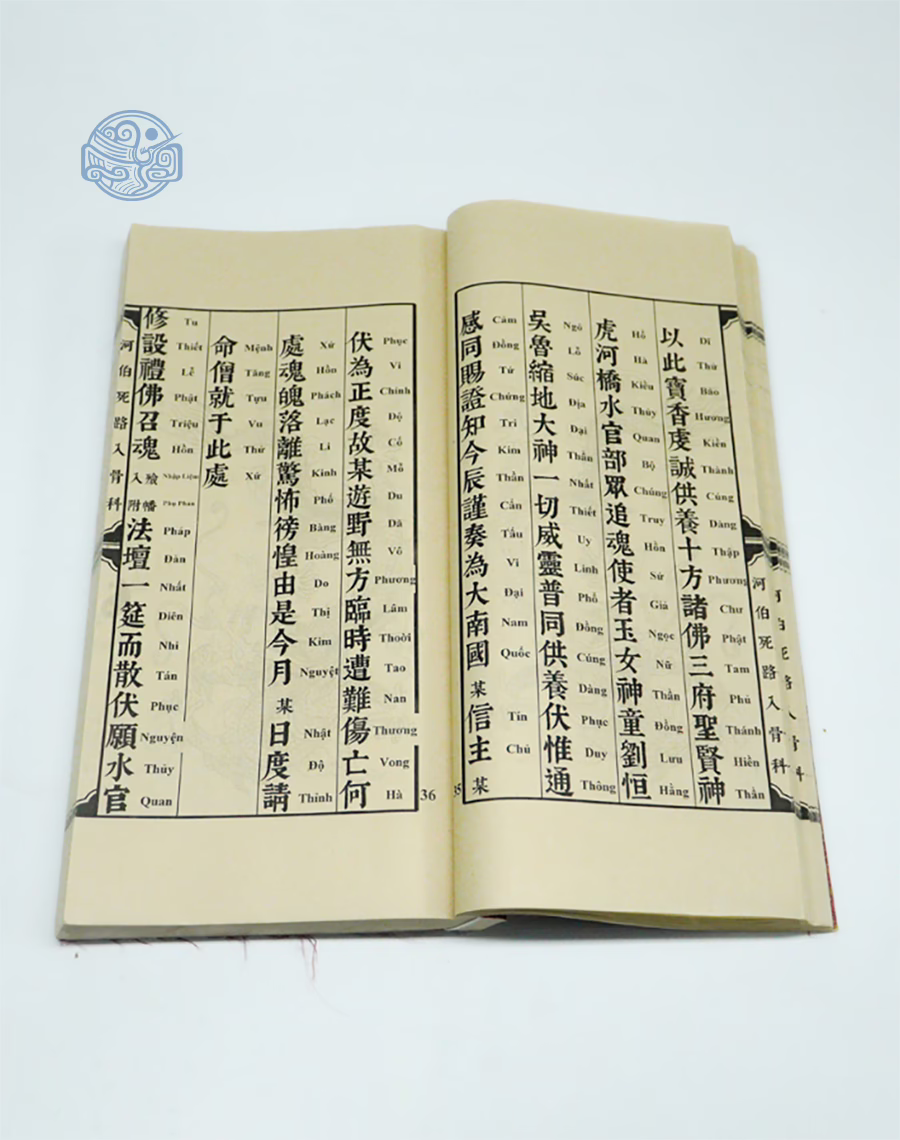 以此寶香虔誠供養十方諸佛三府聖賢神
Dĩ Thử Bảo Hương Kiền Thành Cúng Dàng Thập Phương Chư Phật Tam Phủ Thánh Hiền Thần
虎河橋水官部眾追魂使者玉女神童劉恒
Hổ Hà Kiều Thủy Quan Bộ Chúng Truy Hồn Sứ Giả Ngọc Nữ Thần Đồng Lưu Hằng
吳魯縮地大神一切威靈普同供養伏惟通
Ngô Lỗ Súc Địa Đại Thần Nhất Thiết Uy Linh Phổ Đồng Cúng Dàng Phục Duy Thông
感同賜證知今辰謹奏為大南國某信主某
Cảm Đồng Tứ Chứng Tri Kim Thần Cẩn Tấu Vi Đại Nam Quốc Tín Chủ
35
河伯死路入骨科
伏為正度故某遊野無方臨時遭難傷亡何
Phục Vi Chính Độ Cố Mỗ Du Dã Vô Phương Lâm Thời Tao Nan Thương Vong Hà
處魂魄落離驚怖徬惶由是今月某日度請
Xứ Hồn Phách Lạc Li Kinh Phố Bàng Hoàng Do Thị Kim Nguyệt Nhật Độ Thỉnh
命僧就于此處
Mệnh Tăng Tựu Vu Thử Xứ
修設禮佛召魂入殮附幡法壇一筵而散伏願水官
Tu Thiết Lễ Phật Triệu Hồn Nhập Liệm Phụ Phan Pháp Đàn Nhất Diên Nhi Tán Phục Nguyện Thủy Quan
36
河伯死路入骨科